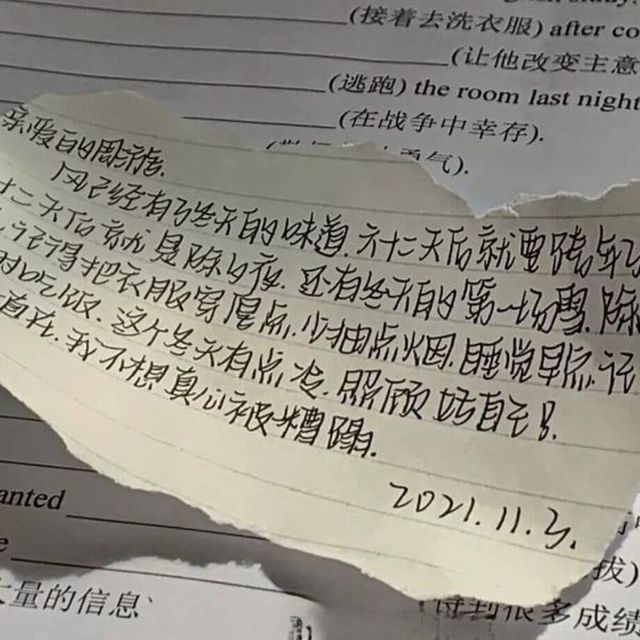 (接着去洗衣服) after co
(让他改变主意
(逃跑) the room last night
(在战争中幸存).
勇气).
亲爱的
风已经有了冬天的味道.六十二天后就要跨年
十二天后就是除夕夜.还有冬天的第一场雪.除
记得把衣服穿厚点.少抽点烟.睡觉早点.记
时吃饭.这个冬天有点冷.照顾好自己.
直在.我不想真心被糟蹋.
2021.11.3.
anted
e
大量的信息
拔)
得到很多成绩